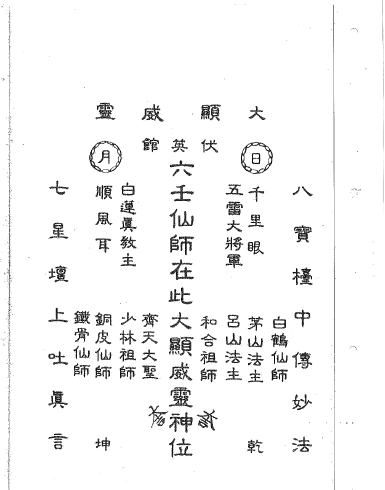 大顯威靈
伏英館
八寶檯中傳妙法
日
千里眼
五雷大將軍
白鶴仙師
茅山法主
呂山法主
和合祖師
乾
六壬仙師在此大顯威靈神位
月
白蓮真教主
順風耳
齊天大聖
少林祖師
銅皮仙師
鐵骨仙師
坤
七星壇上吐眞言